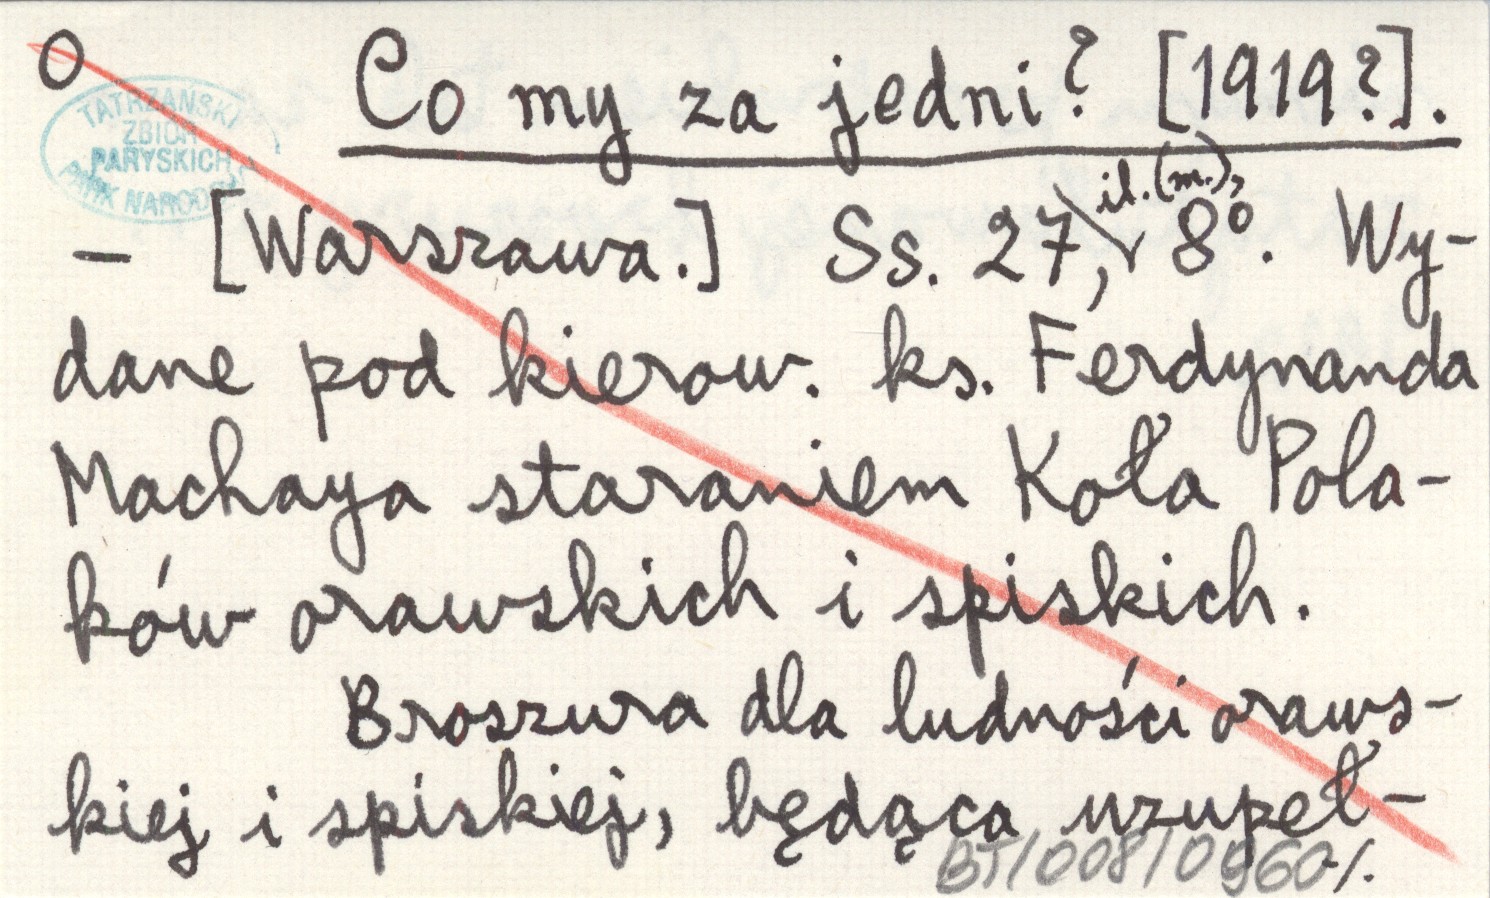 O Co my za jedni? [1919?].
TATRZAŃSKI
ZBIOR
PARYSKICH
PARK NARODOWY
il. (m.),
— [Warszawa.] Ss. 27, 8°. Wy-
dane pod kierow. ks. Ferdynanda
Machaya staraniem Koła Pola-
ków orawskich i spiskich.
Broszura dla ludności oraws-
kiej i spiskiej, będąca uzupeł-
BT/008/0960 ./.